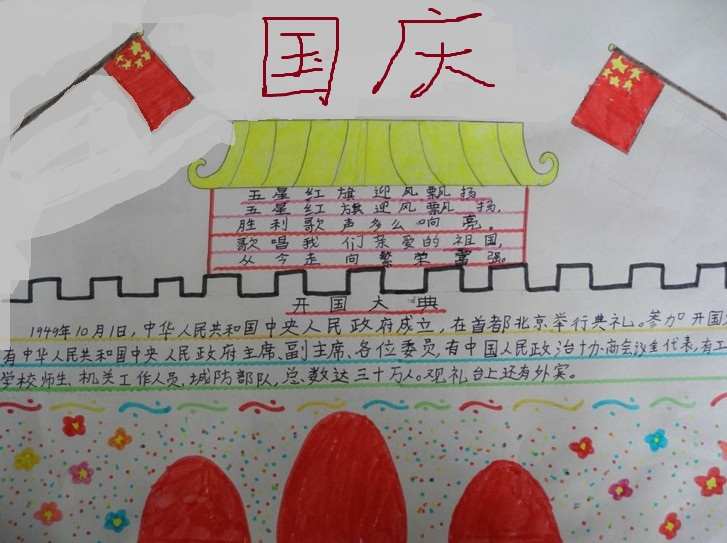 国庆
五星红旗迎风飘扬
五星红旗迎风飘扬,
胜利歌声多么响亮。
歌唱我们亲爱的祖国,
从今走向繁荣富强。
开国大典
1949年10月1日,中华人民共和国中央人民政府成立,在首都北京举行典礼。参加开国
有中华人民共和国中央人民政府主席、副主席、各位委员,有中国人民政治协商会议全代表,有工
学校师生、机关工作人员,城防部队,总数达三十万人。观礼台上还有外宾。